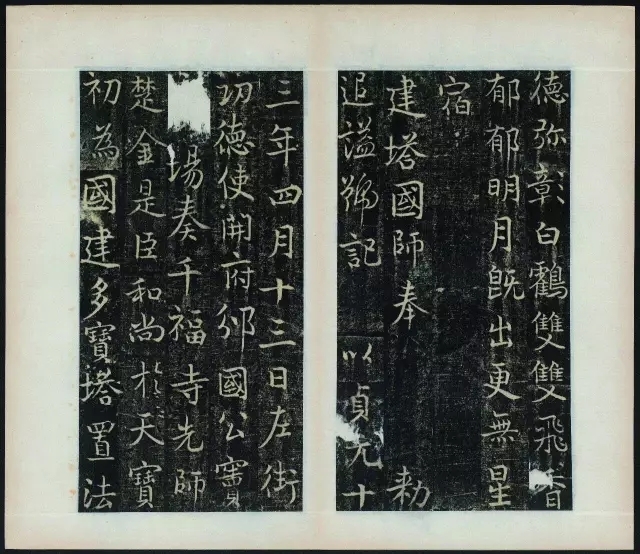 德弥彰白鸖雙雙飛香
郁郁明月旣出更無星
宿
建塔國師奉 勑
追謚號記 以貞元十
三年四月十三日左街
功德使開府邠國公竇
場奏千福寺先師
楚金是臣和尚於天寶
初為國建多寶塔置法